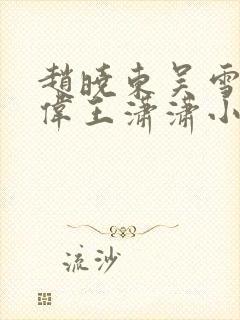 趙曉東吳雪
偉王瀟瀟小
流沙